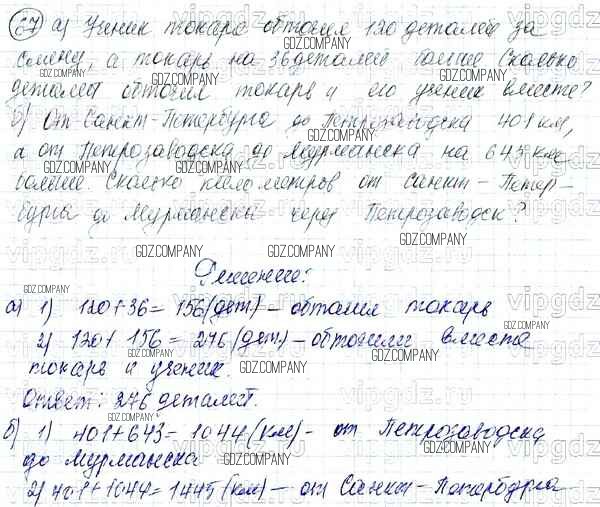 67 а) Ученик токаря обточил 120 деталей за
смену, а токарь на 36 деталей больше. Сколько
деталей обточил токарь и его ученик вместе?
б) От Санкт-Петербурга до Петрозаводска 401 км,
а от Петрозаводска до Мурманска на 643 км
больше. Сколько километров от Санкт-Петер-
бурга до Мурманска через Петрозаводск?
Решение:
а) 1) 120+36= 156 (дет.) – обточил токарь
2) 120+ 156 = 276 (дет.) – обточили вместе
токарь и ученик.
Ответ: 276 деталей.
б) 1) 401+643= 1044 (км) – от Петрозаводска
до Мурманска
2) 401+1044=1445 (км) – от Санкт-Петербурга